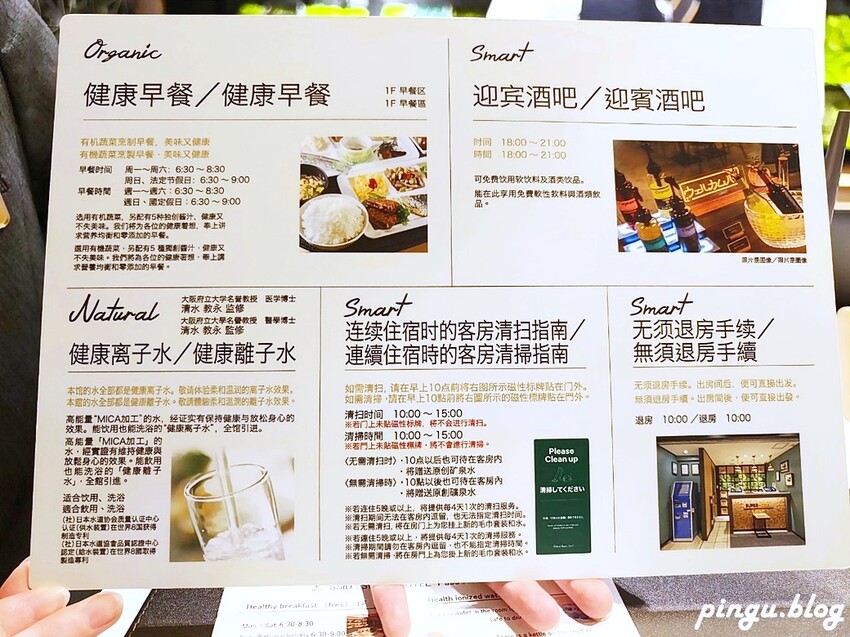 Organic
健康早餐／健康早餐
1F 早餐区
1F 早餐區
有机蔬菜烹制早餐，美味又健康
有機蔬菜烹製早餐，美味又健康
早餐时间 周一～周六：6:30 ～ 8:30
周日、法定节假日：6:30 ～ 9:00
早餐時間 週一～週六：6:30 ～ 8:30
週日、國定假日：6:30 ～ 9:00
选用有机蔬菜，另配有5种独创酱汁，健康又
不失美味。我们将为各位的健康着想，奉上讲
求营养均衡和零添加的早餐。
選用有機蔬菜，另配有 5 種獨創醬汁，健康又
不失美味。我們將為各位的健康著想，奉上講
求營養均衡和零添加的早餐。
Smart
迎宾酒吧／迎賓酒吧
时间 18:00 ～ 21:00
時間 18:00 ～ 21:00
可免费饮用软饮料及酒类饮品。
能在此享用免費軟性飲料與酒類飲
品。
ウェルカムバー
照片是图像／照片是圖像
Natural
大阪府立大学名誉教授 医学博士
清水 教永 监修
大阪府立大學名譽教授 醫學博士
清水 教永 監修
健康离子水／健康離子水
本馆的水全部都是健康离子水。敬请体验柔和温润的离子水效果。
本館的水全部都是健康離子水。敬請體驗柔和溫潤的離子水效果。
高能量“MICA加工”的水，经证实有保持健康与放松身心的
效果。能饮用也能洗浴的“健康离子水”，全馆引进。
高能量「MICA加工」的
水，經實證有維持健康與
放鬆身心的效果。能飲用
也能洗浴的「健康離子
水」，全館引進。
适合饮用、洗浴
適合飲用、洗浴
(社)日本水道协会质量认证中心
认证(供水装置)在世界8国获得
制造专利
(社)日本水道協會品質認證中心
認定(給水裝置)在世界8國取得
製造專利
Smart
连续住宿时的客房清扫指南／
連續住宿時的客房清掃指南
如需清扫，请在早上10点前将右图所示磁性标牌贴在门外。
如需清掃，請在早上10點前將右圖所示的磁性標牌貼在門外。
清扫时间 10:00 ～ 15:00
※若门上未贴磁性标牌，将不会进行清扫。
清掃時間 10:00 ～ 15:00
※若門上未貼磁性標牌，將不會進行清掃。
〈无需清扫时〉・10点以后也可待在客房内
・将赠送原创矿泉水
〈無需清掃時〉・10點以後也可待在客房內
・將贈送原創礦泉水
※若连住5晚或以上，将提供每4天1次的清扫服务。
※清扫期间无法在客房内逗留，也无法指定清扫时间。
※若无需清扫，将在房门上为您挂上新的毛巾套装和水。
※若連住5晚或以上，將提供每4天1次的清掃服務。
※清掃期間請勿在客房內逗留，也不能指定清掃時間。
※若無需清掃，將在房門上為您掛上新的毛巾套裝和水。
Please
Clean up
清掃してください
Smart
无须退房手续／
無須退房手續
无须退房手续。出房间后，便可直接出发。
無須退房手續。出房間後，便可直接出發。
退房 10:00／退房 10:00
Healthy breakfast (free)
Health ionized wat
Mon - Sat 6:30-8:30
pingu.blog